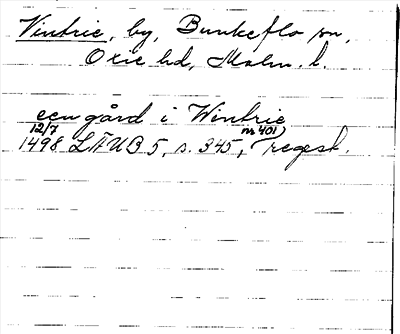 Vintrie, by, Bunkeflo sn,
Oxie hd, Malm. l.
een gård i Wintrie
12/7 1498 LÄUB 5, s. 345, (nr 401) regest.